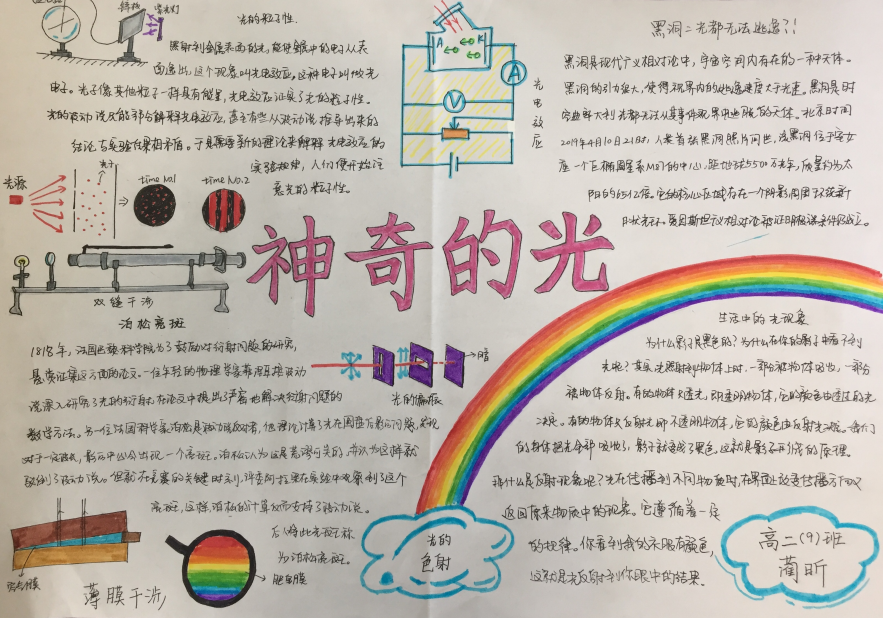 锌板
紫光灯
光的粒子性.
照射到金属表面的光,能使金属中的电子从表
面逸出,这个现象叫光电效应。这种电子叫做光
电子。光子像其他粒子一样具有能量,光电效应证实了光的粒子性。
光的波动说及能部分解释光电效应,甚至有些从波动说推导出来的
结论与实验结果相矛盾。于是需要新的理论来解释光电效应的
实验规律,人们便开始注
意光的粒子性。
A
K
A
V
光电效应
黑洞=光都无法逃逸?!
黑洞是现代广义相对论中,宇宙空间内存在的一种天体。
黑洞的引力很大,使得视界内的逃逸速度大于光速。黑洞是时
空曲率大到光都无法从其事件视界中逃脱的天体。北京时间
2019年4月10日21时,人类首张黑洞照片问世,该黑洞位于室女
座一个巨椭圆星系M87的中心,距地球5500万光年,质量约为太
阳的65亿倍。它的核心区域存在一个阴影,周围
日状光环。爱因斯坦广义相对论被证明
光源
光子
time NO.1
time NO.2
双缝干涉
神奇的光
泊松亮斑
1818年,法国巴黎科学院为了鼓励对衍射问题的研究,
悬赏征集这方面的论文。一位年轻的物理学家菲涅耳按波动
说深入研究了光的衍射,在论文中提出了严密地解决衍射问题的
数学方法。另一位法国科学家泊松是波动说反对者,他理论计算了光在圆盘后影的问题,发现
对于一定波长,影子中心会出现一个亮斑。泊松认为这是荒谬可笑的,并认为这样就
驳倒了波动说。但就在竞赛的关键时刻,评委阿拉果在实验中观察到了这个
亮斑,这样,泊松的计算反而支持了波动说。
后人将此光斑称
为泊松亮斑。
光的偏振
暗
生活中的光现象
为什么影子是黑色的?为什么在你的影子中看不到
光呢?其实,光照射到物体上时,一部分被物体吸收,一部分
被物体反射。有的物体只透光,即透明物体,它的颜色由透过的光
决定。有的物体只反射光,即不透明物体,它的颜色由反射光决定。我们
的身体把光全部吸收了,影子就变成了黑色。这就是影子形成的原理。
那什么是反射现象呢?光在传播到不同物质时,在界面上改变传播方向又
返回原来物质中的现象。它遵循着一定
的规律。你看到我的衣服有颜色,
这就是光反射到你眼中的结果。
薄膜干涉
肥皂膜
光的
色射
高二(9)班
蔺昕